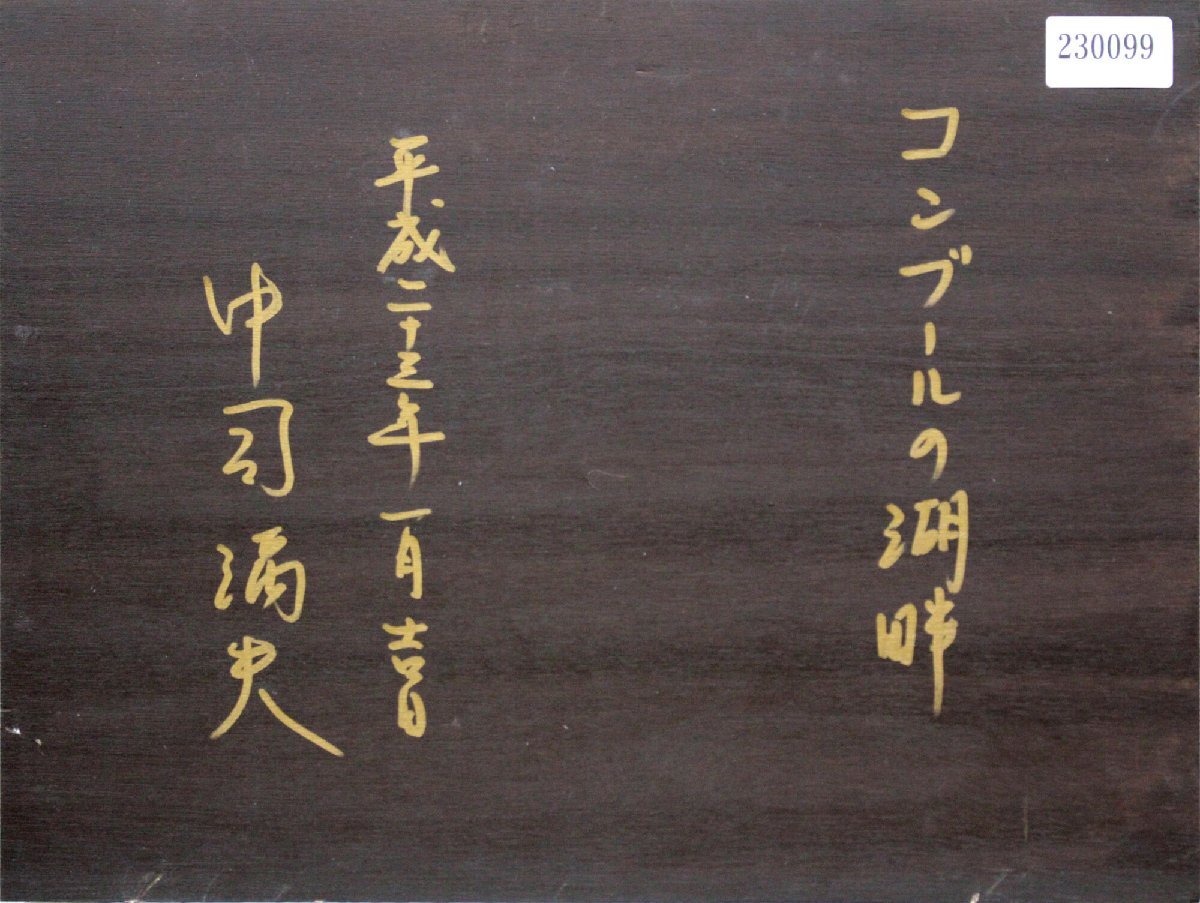 230099
コンブールの湖畔
平成二十三年一月吉日
中司満夫